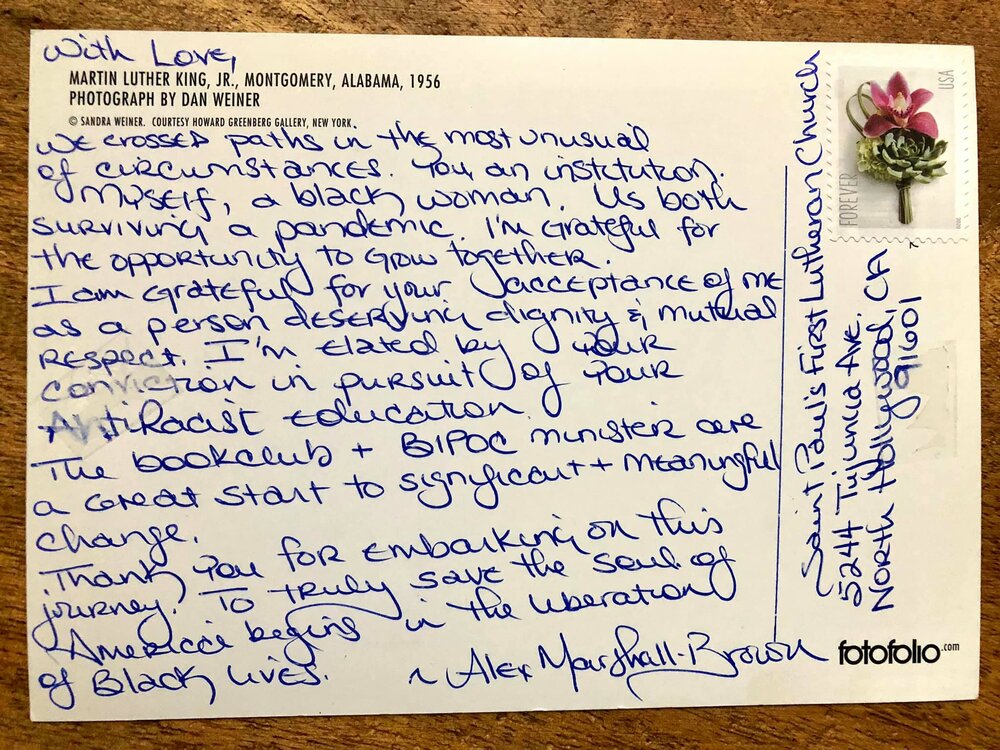 With Love,
MARTIN LUTHER KING, JR., MONTGOMERY, ALABAMA, 1956
PHOTOGRAPH BY DAN WEINER
© SANDRA WEINER. COURTESY HOWARD GREENBERG GALLERY, NEW YORK.
We crossed paths in the most unusual
of circumstances. You, an institution.
Myself, a black woman. Us both
surviving a pandemic. I'm grateful for
the opportunity to grow together.
I am grateful for your acceptance of me
as a person deserving dignity & mutual
respect. I'm elated by your
conviction in pursuit of your
AntiRacist education.
The bookclub + BIPOC minister are
a great start to significant + meaningful
change.
Thank you for embarking on this
journey. To truly save the soul of
America begins in the liberation
of Black lives. ~ Alex Marshall-Brown
Saint Paul's First Lutheran Church
5244 Tujunga Ave.
North Hollywood, CA
91601
FOREVER
USA
2020
fotofolio.com